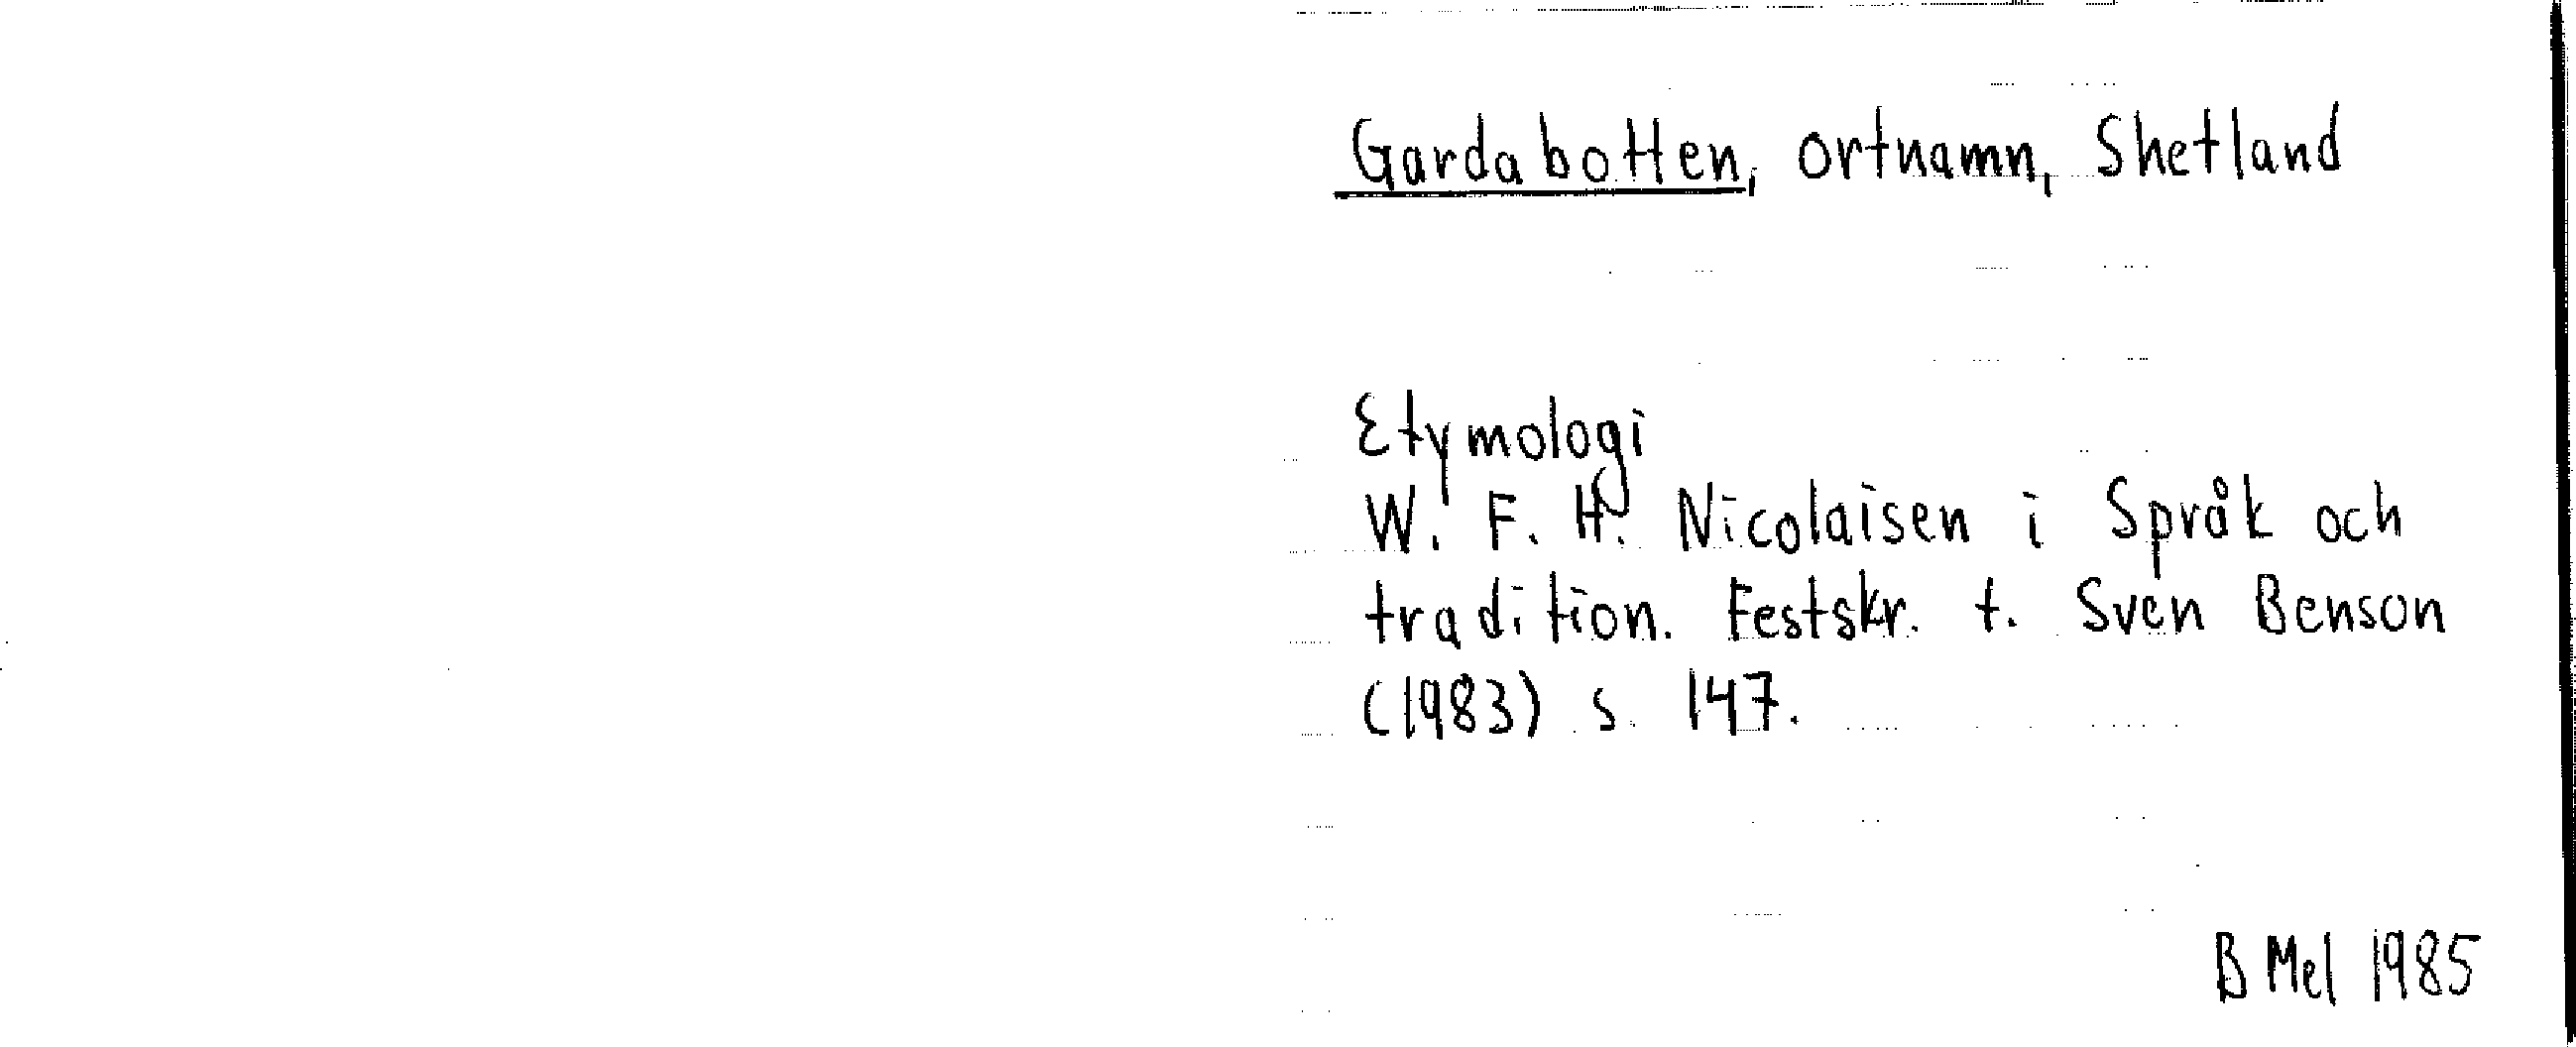 Gardabotten, ortnamn, Shetland
Etymologi
W. F. H. Nicolaisen i Språk och
tradition. Festskr. t. Sven Benson
(1983) s. 147.
B Mel 1985